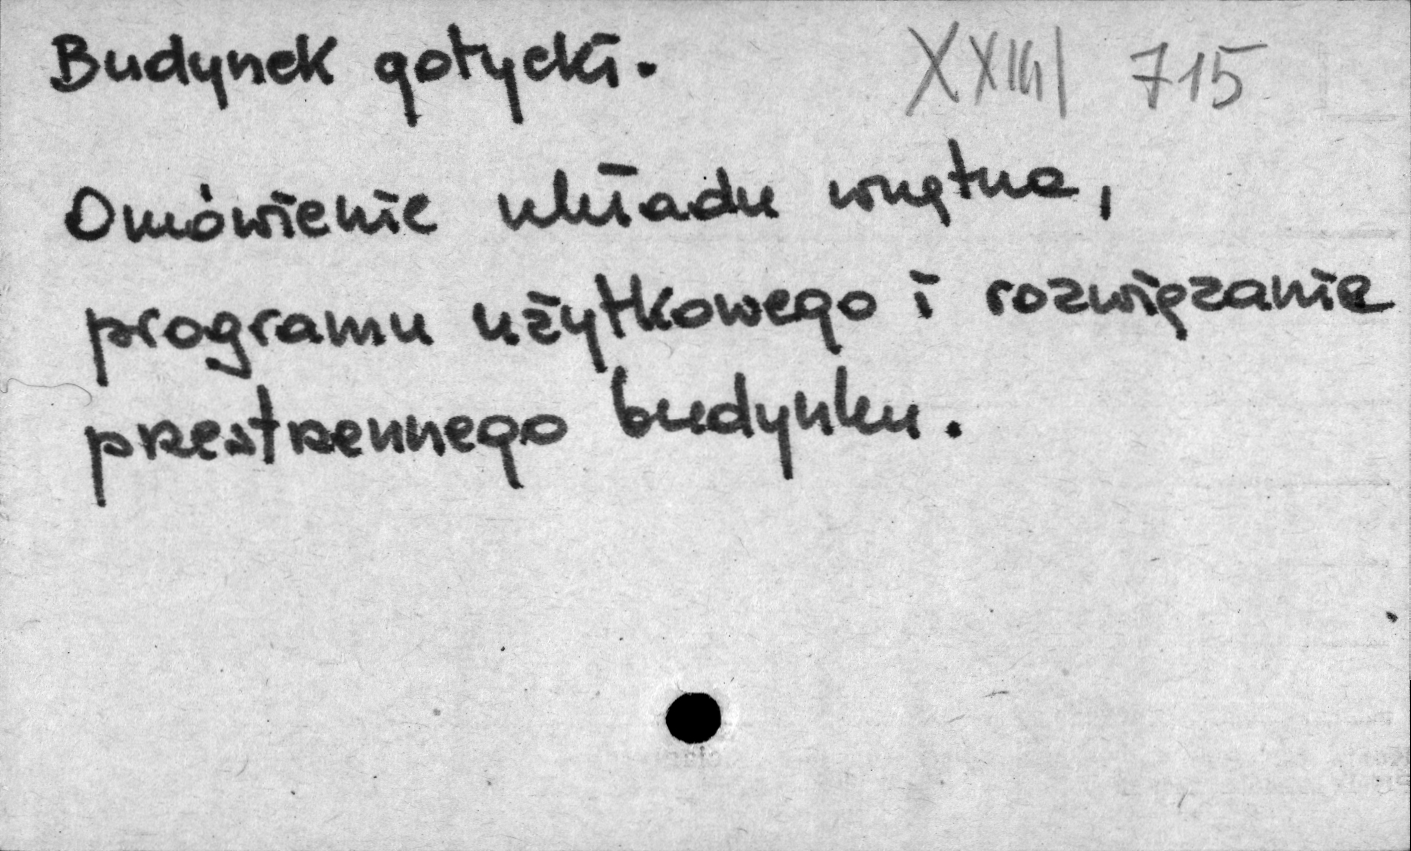 Budynek gotycki. XXIII 715
Omówienie układu wnętrza,
programu użytkowego i rozwiązanie
przestrzennego budynku.